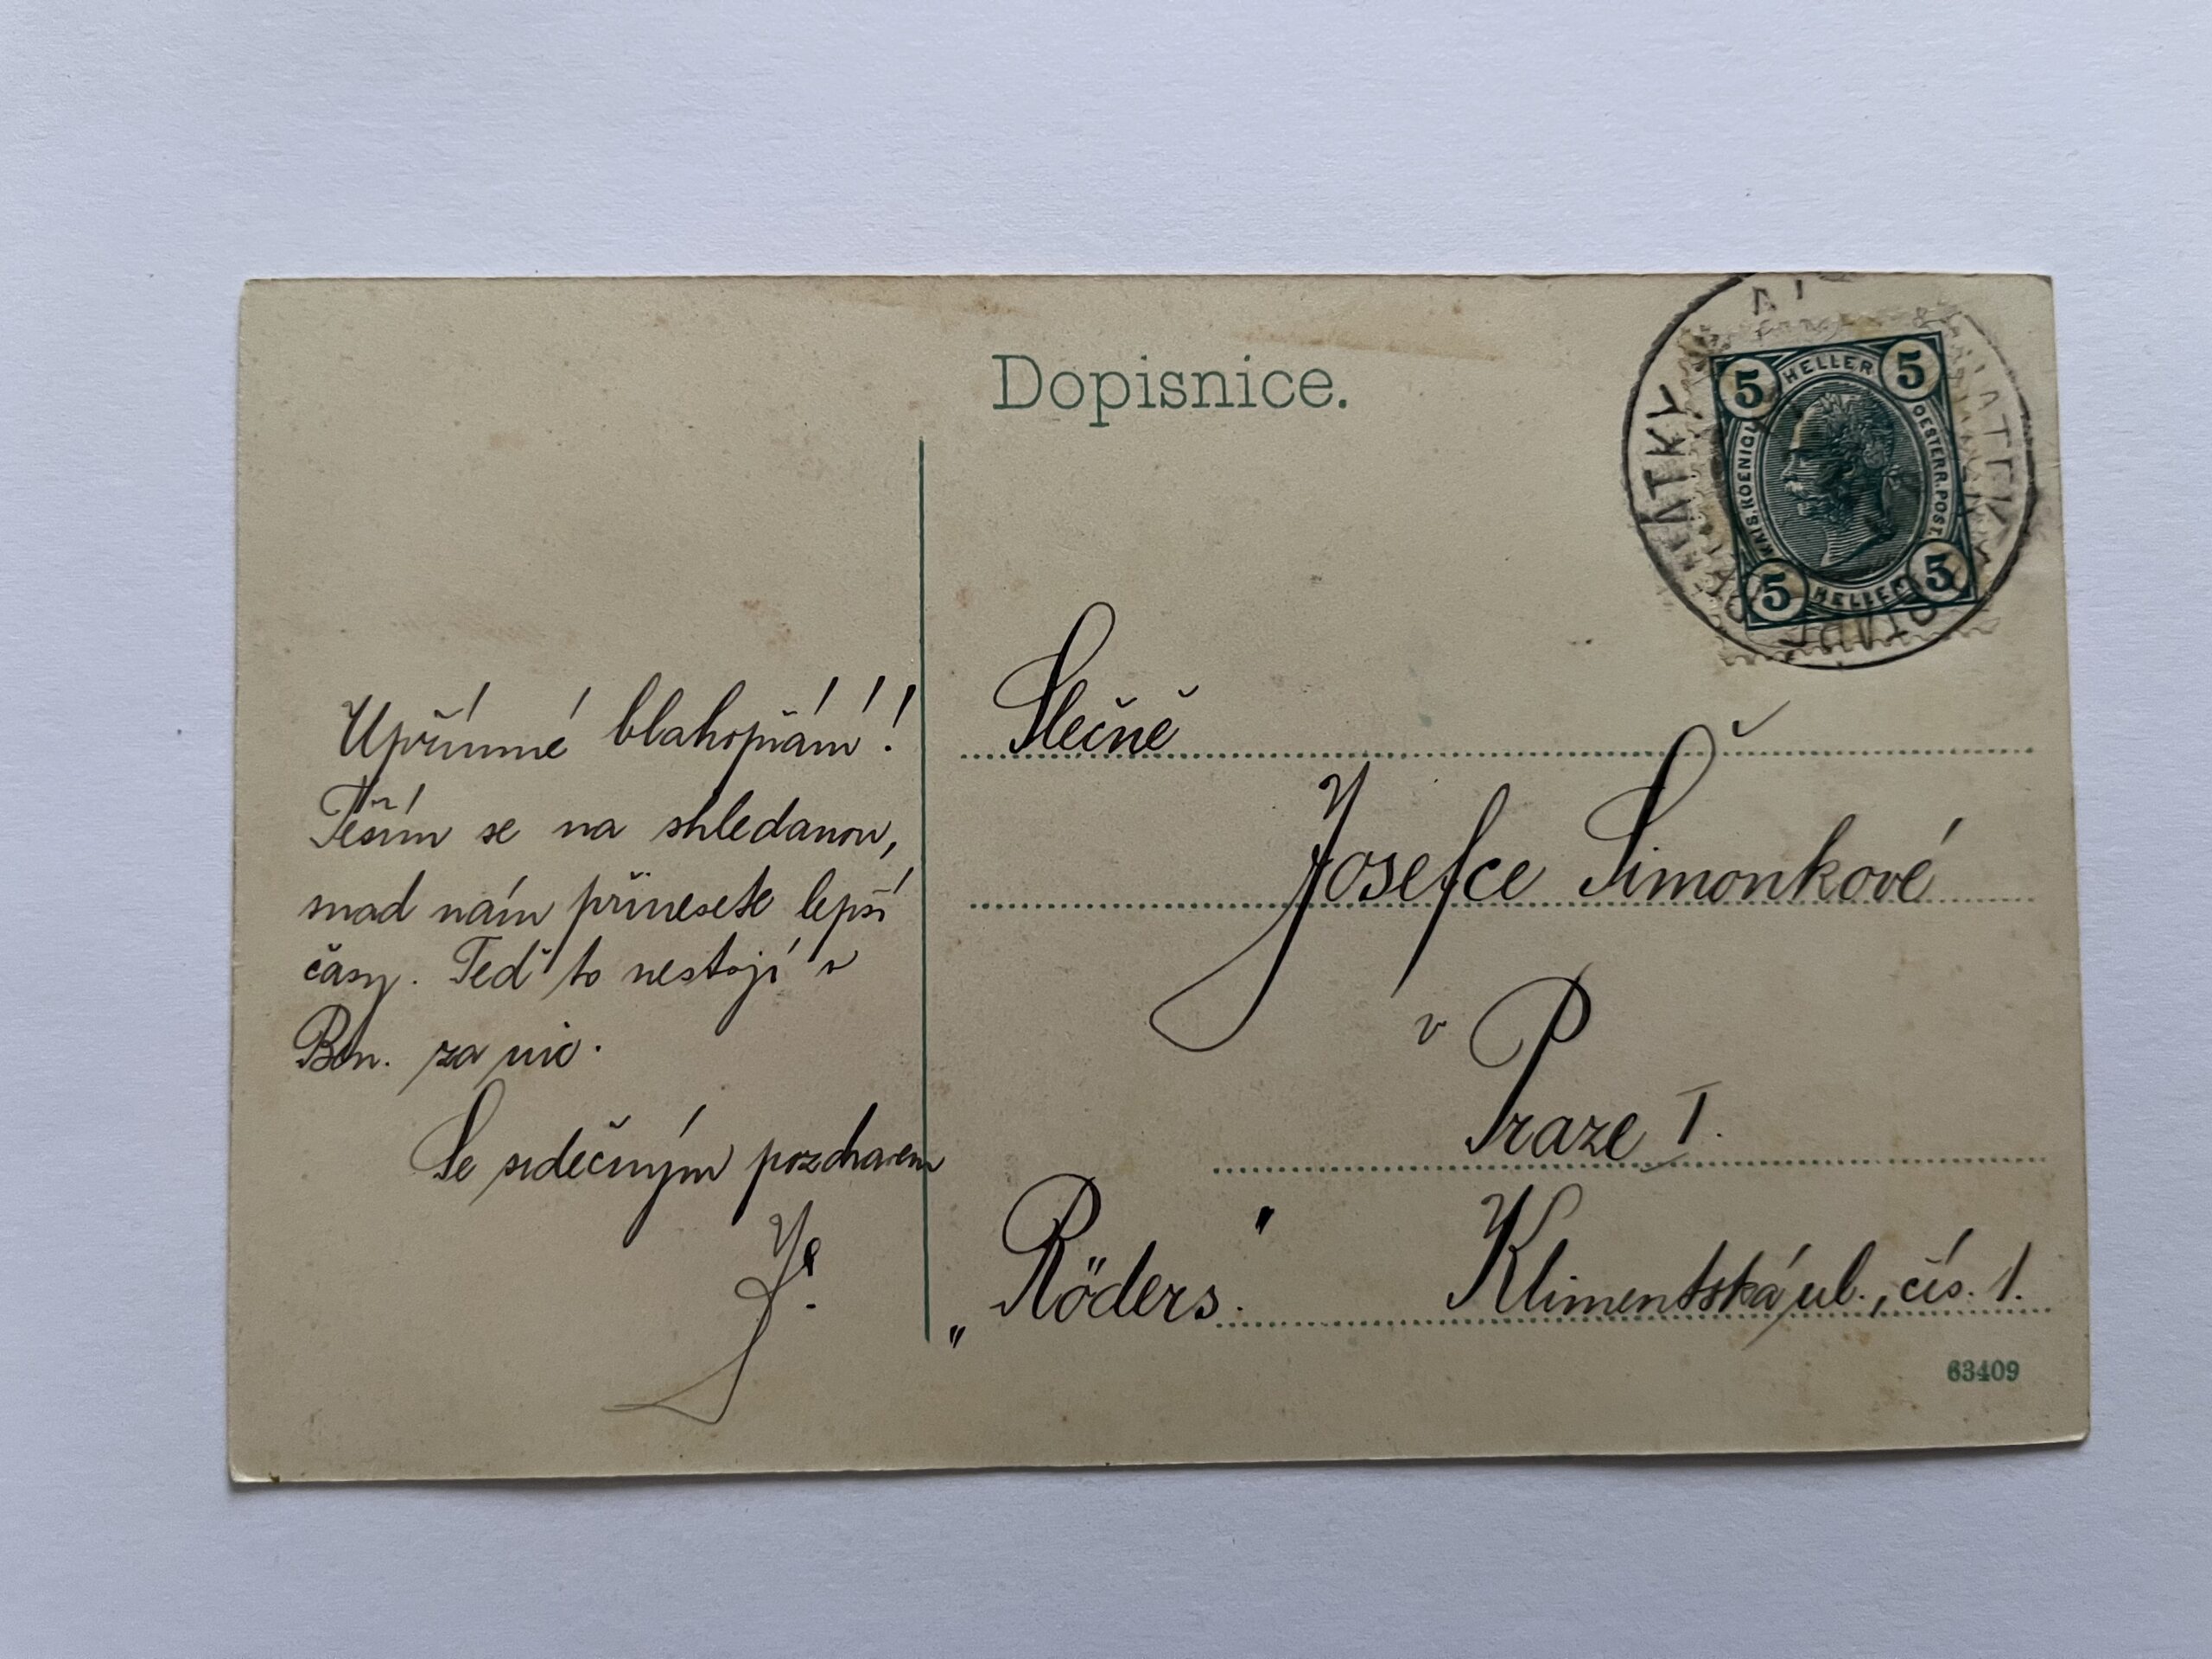 Dopisnice.
5 HELLER 5
KAIS. KOENIGL. OESTERR. POST.
5 HELLER 5
Upřímné blahopřání!
Těším se na shledanou,
snad nám přinesete lepší
časy. Teď to nestojí v
Ben. za nic.
Se srdečným pozdravem
Slečně
Josefce Šimonkové
v Praze I.
„Röders." Klimentská ul., čís. 1.
63409